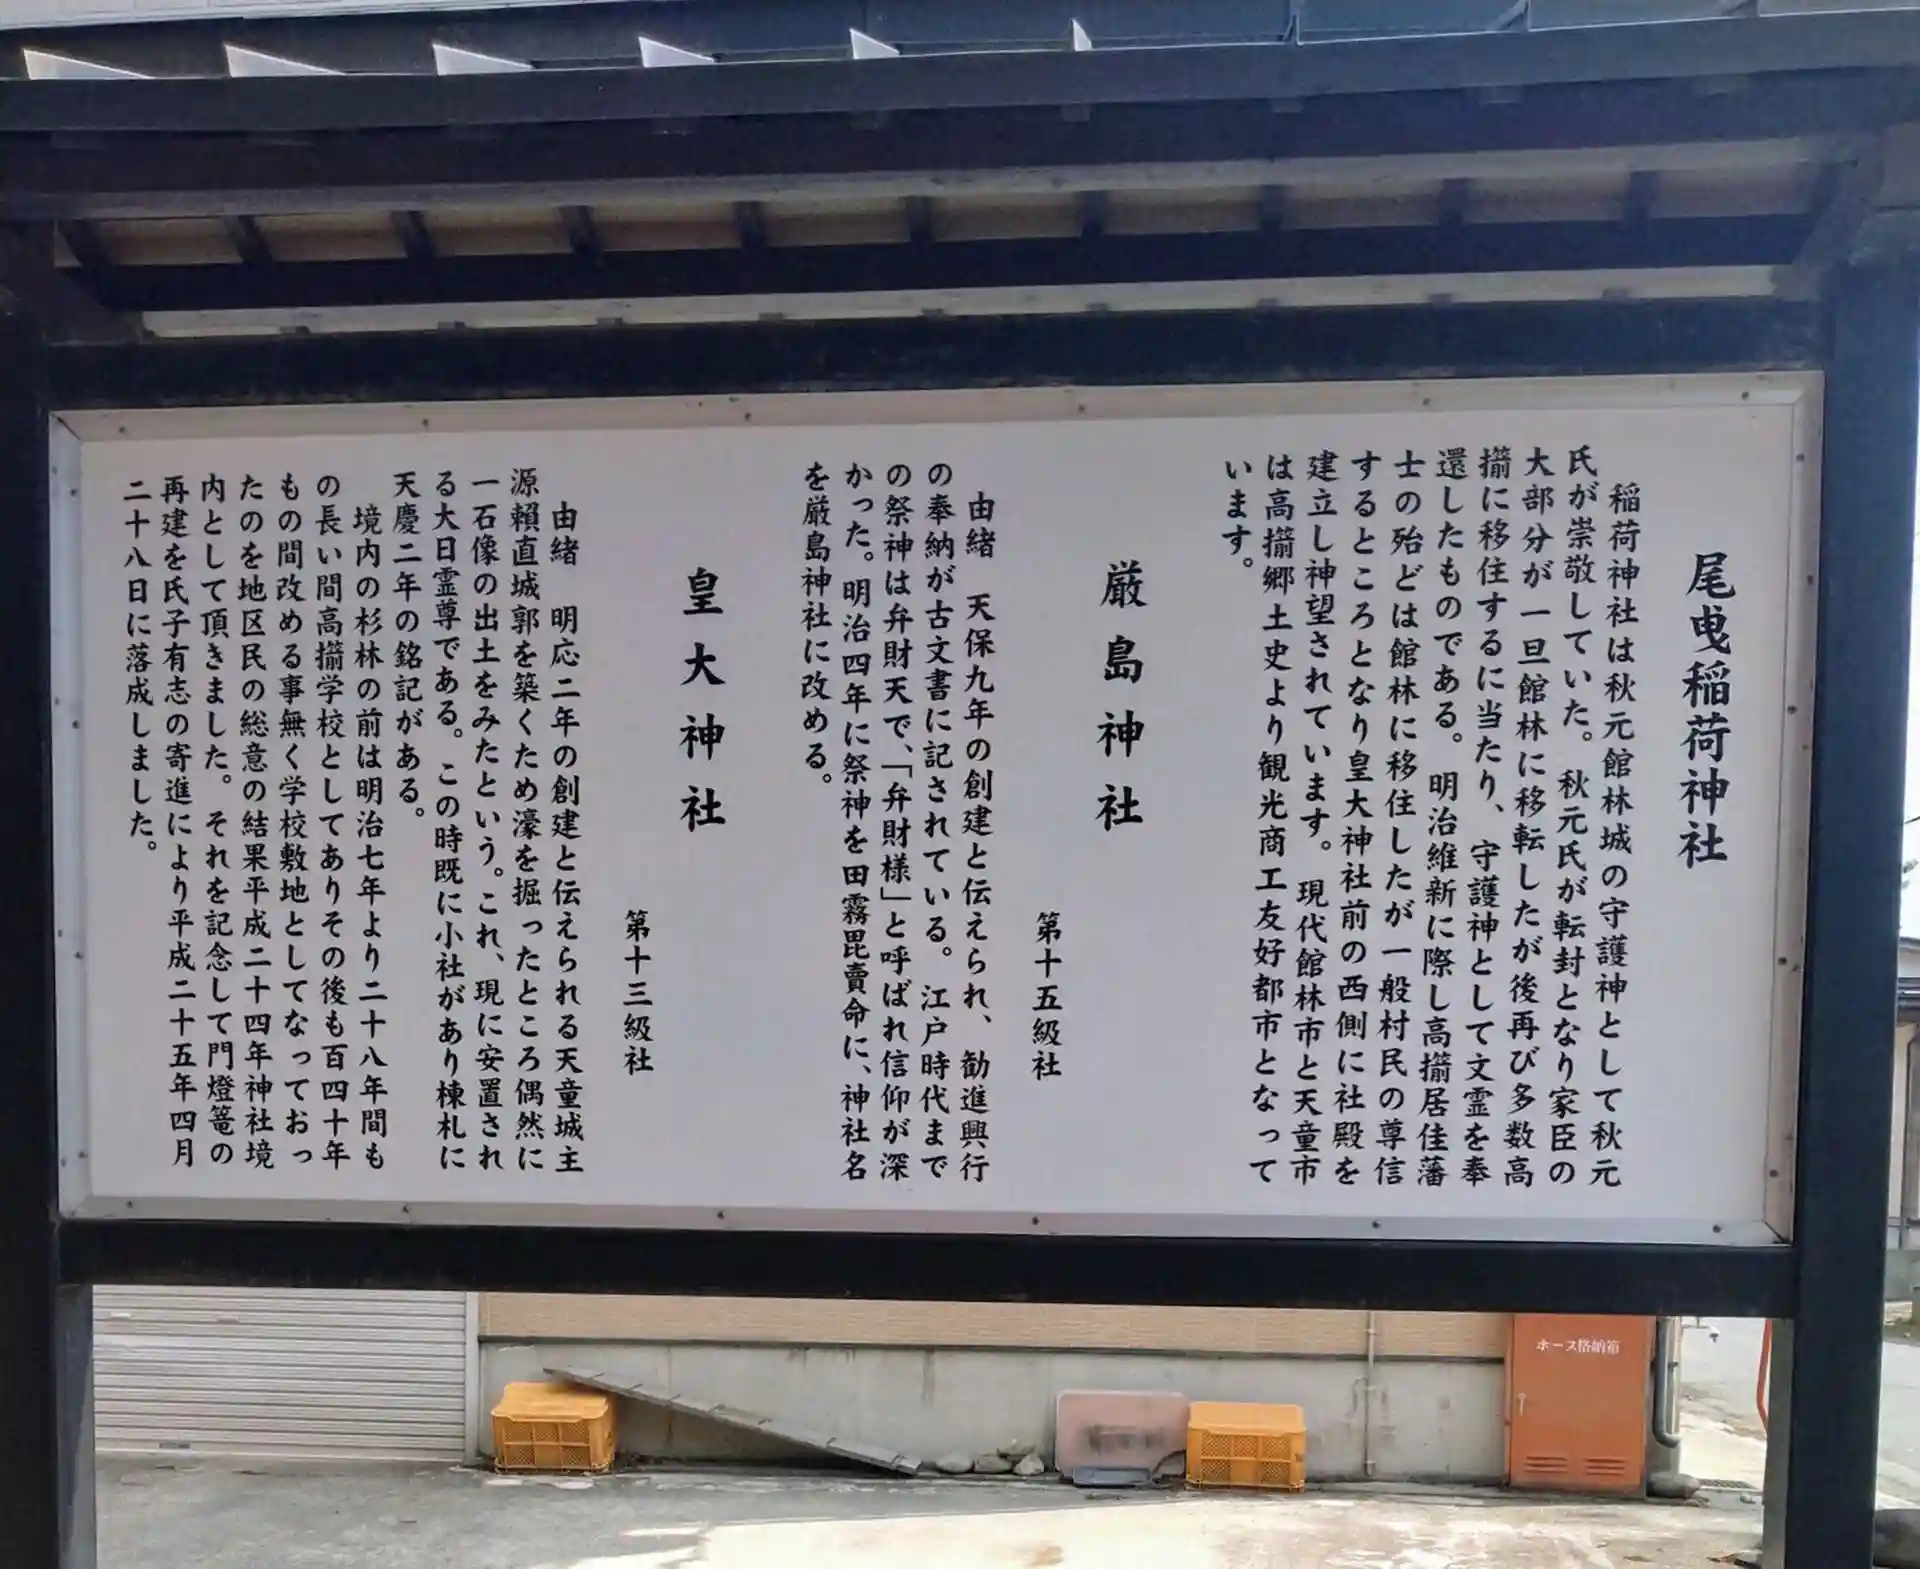 尾曳稲荷神社
稲荷神社は秋元館林城の守護神として秋元
氏が崇敬していた。秋元氏が転封となり家臣の
大部分が一旦館林に移転したが後再び多数高
擶に移住するに当たり、守護神として文霊を奉
還したものである。明治維新に際し高擶居住藩
士の殆どは館林に移住したが一般村民の尊信
するところとなり皇大神社前の西側に社殿を
建立し神望されています。現代館林市と天童市
は高擶郷土史より観光商工友好都市となって
います。
厳島神社
第十五級社
由緒 天保九年の創建と伝えられ、勧進興行
の奉納が古文書に記されている。江戸時代まで
の祭神は弁財天で、「弁財様」と呼ばれ信仰が深
かった。明治四年に祭神を田霧毘賣命に、神社名
を厳島神社に改める。
皇大神社
第十三級社
由緒 明応二年の創建と伝えられる天童城主
源頼直城郭を築くため濠を掘ったところ偶然に
一石像の出土をみたという。これ、現に安置され
る大日霊尊である。この時既に小社があり棟札に
天慶二年の銘記がある。
境内の杉林の前は明治七年より二十八年間も
の長い間高擶学校としてありその後も百四十年
もの間改める事無く学校敷地としてなっておっ
たのを地区民の総意の結果平成二十四年神社境
内として頂きました。それを記念して門燈篭の
再建を氏子有志の寄進により平成二十五年四月
二十八日に落成しました。
ホース格納箱